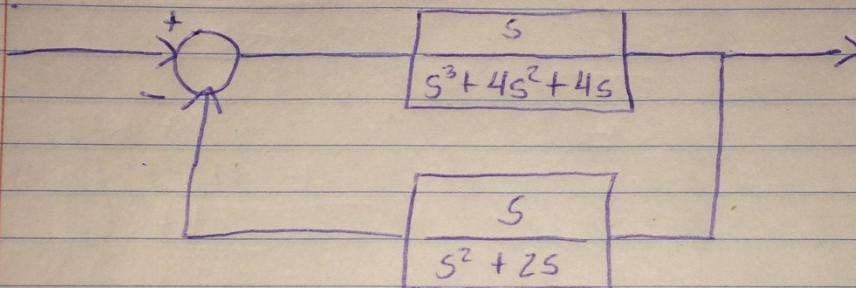 +
s
s³ + 4s² + 4s
-
s
s² + 2s